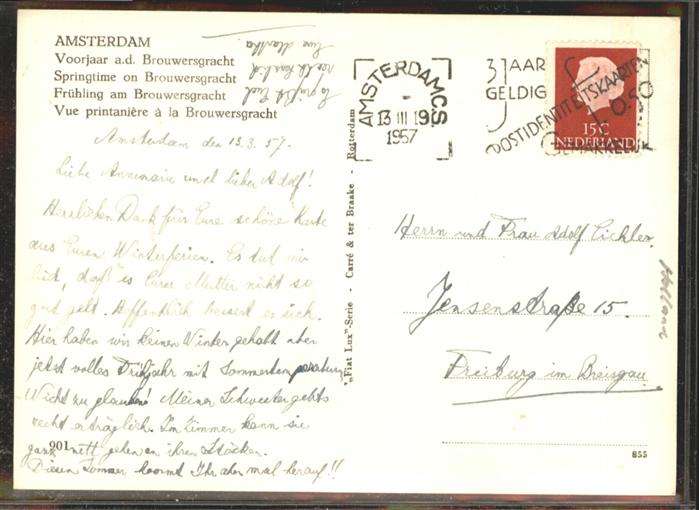 AMSTERDAM
Voorjaar a.d. Brouwersgracht
Springtime on Brouwersgracht
Frühling am Brouwersgracht
Vue printanière à la Brouwersgracht
Amsterdam den 13.3.57.
Liebe Annemarie und lieber Adolf!
Herzlichen Dank für Eure schöne Karte
aus Euren Winterferien. Es tut mir
leid, daß es Eurer Mutter nicht so
gut geht. Hoffentlich bessert es sich.
Hier haben wir keinen Winter gehabt aber
jetzt volles Frühjahr mit Sommertemperaturen
Nicht zu glauben! Meiner Schwester gehts
recht erträglich. Im Zimmer kann sie
ganz nett gehen an ihren Stöcken.
Diesen Sommer kommt Ihr aber mal herauf!!
Es grüßt Euch
recht herzlich
Eure Martha
901
"Fiat Lux"-Serie - Carré & ter Braake - Rotterdam
AMSTERDAM CS
13 III 19
1957
3 JAAR
GELDIG
POSTIDENTITEITSKAARTEN
0.50
GEMAKKELIJK
15 C
NEDERLAND
Herrn und Frau Adolf Eichler.
Jensenstraße 15.
Freiburg im Breisgau
Holland
855